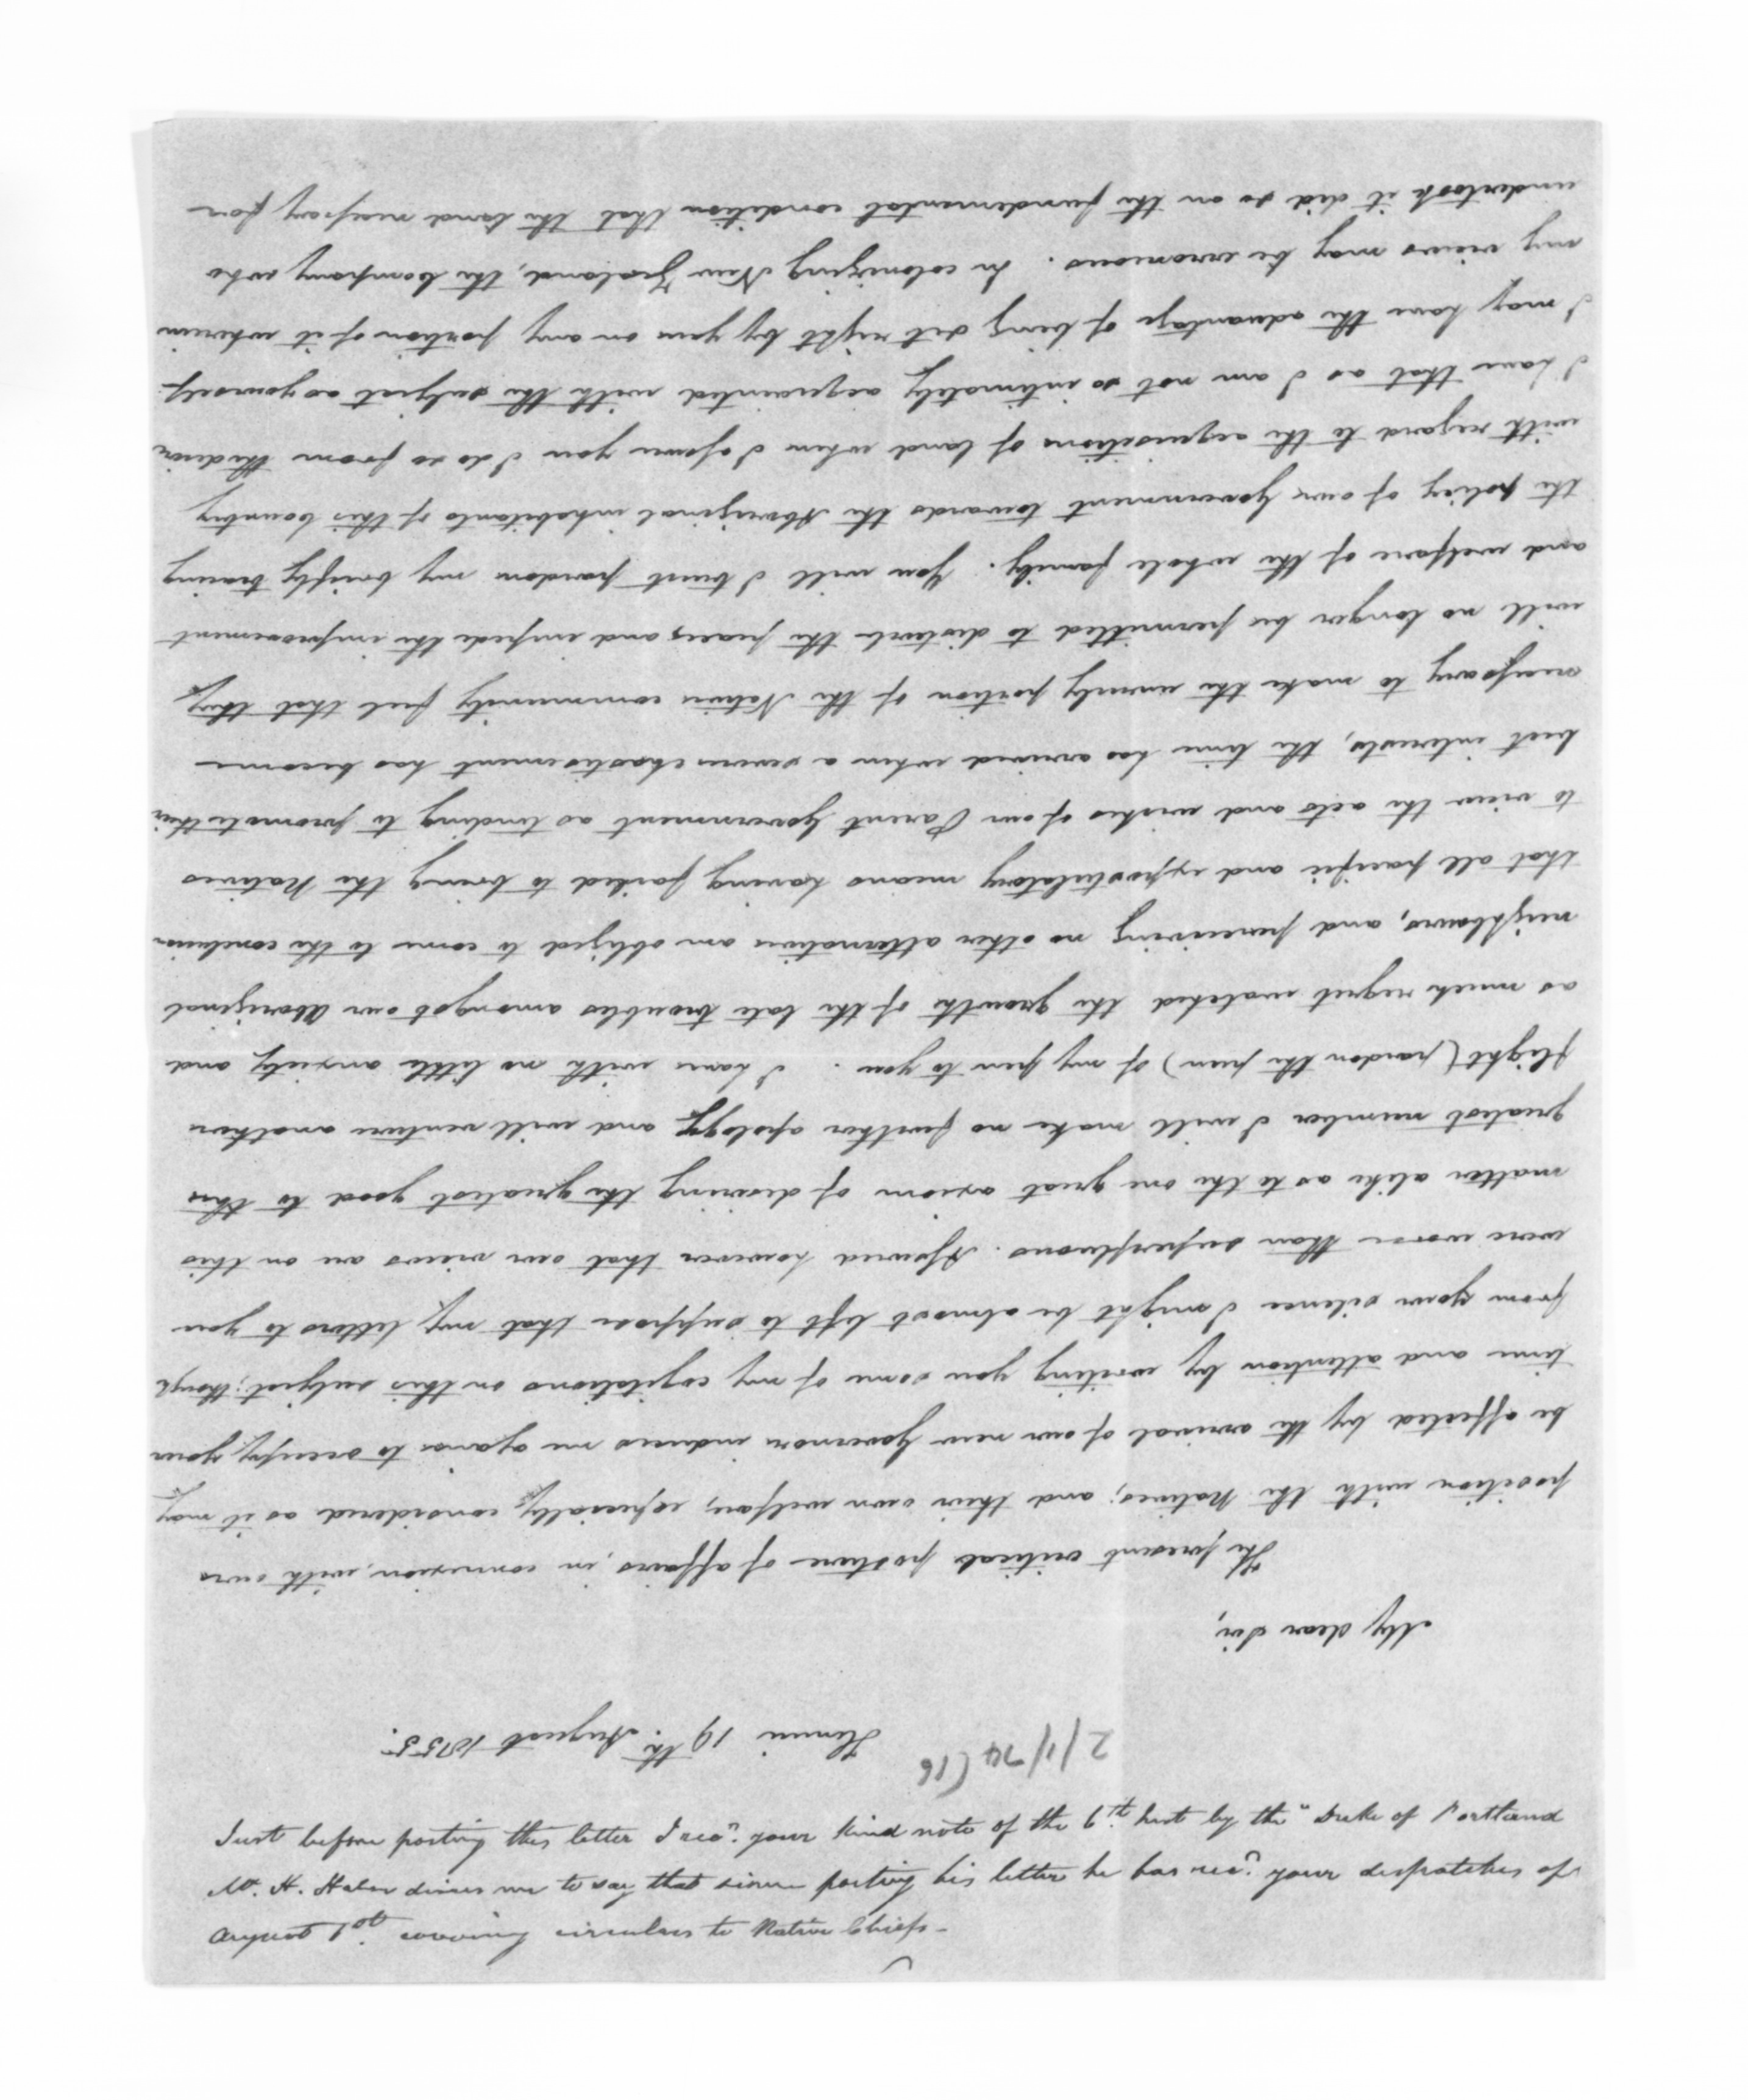 Henui 19th. August 1855.
2/1/74 (16
My dear Sir,
The present critical posture of affairs, in connexion, with our
position with the Natives; and their own welfare, especially, considered as it may
be affected by the arrival of our new Governor induces me again to occupy your
time and attention by writing you some of my cogitations on this subject; though
from your silence I might be almost left to suppose that my letters to you
were worse than superfluous. Assured however that our views are on this
matter alike as to the one great axiom of desiring the greatest good to the
greatest number I will make no further apology and will venture another
flight (pardon the pun) of my pen to you. I have with no little anxiety and
as much regret watched the growth of the late troubles amongst our Aboriginal
neighbours, and perceiving no other alternative am obliged to come to the conclusion
that all pacific and expostulatory means having failed to bring the Natives
to view the acts and wishes of our Parent Government as tending to promote their
best interests, the time has arrived when a severe chastisement has become
necessary to make the unruly portion of the Native community feel that they
will no longer be permitted to disturb the peace, and impede the improvement
and welfare of the whole family. You will I trust pardon my briefly tracing
the policy of our Government towards the Aboriginal inhabitants of this Country
with regard to the acquisitions of land when I assure you I do so from the desire
I have that as I am not so intimately acquainted with the subject as yourself
I may have the advantage of being set right by you on any portion of it wherein
my views may be erroneous. In colonizing New Zealand, the Company who
undertook it did so on the fundamental condition that the land necessary for
Just before posting this letter I recd. your kind note of the inst by the "Duke of Portland
Mr. H. Halse desires me to say that since posting his letter he has recd. your despatches of
August 1st. covering circulars to Native Chiefs -